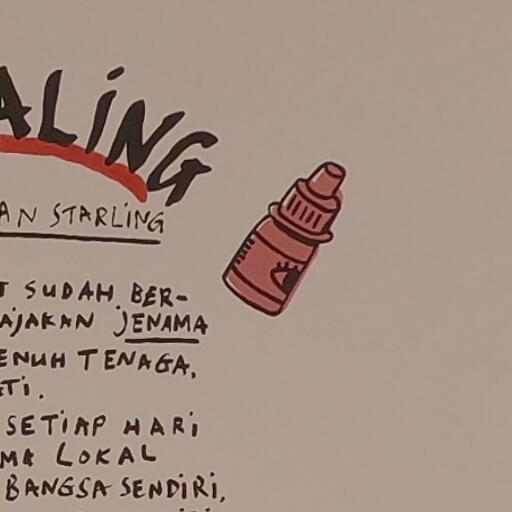 ALING
AN STARLING
T SUDAH BER-
AJAKAN JENAMA
ENUH TENAGA,
ATI.
SETIAP HARI
MA LOKAL
BANGSA SENDIRI,